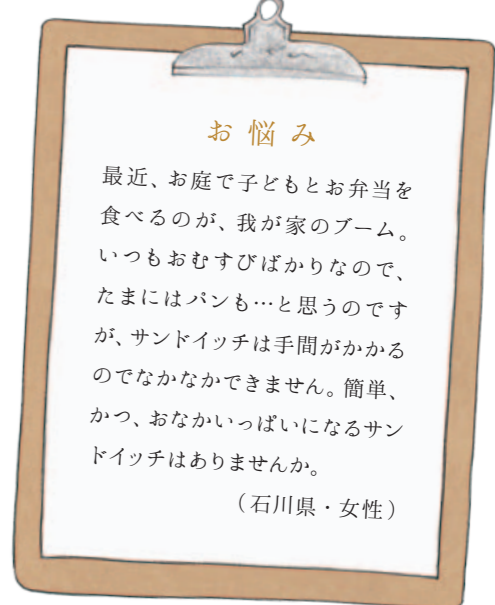 お悩み
最近、お庭で子どもとお弁当を
食べるのが、我が家のブーム。
いつもおむすびばかりなので、
たまにはパンも…と思うのです
が、サンドイッチは手間がかかる
のでなかなかできません。簡単、
かつ、おなかいっぱいになるサン
ドイッチはありませんか。
（石川県・女性）